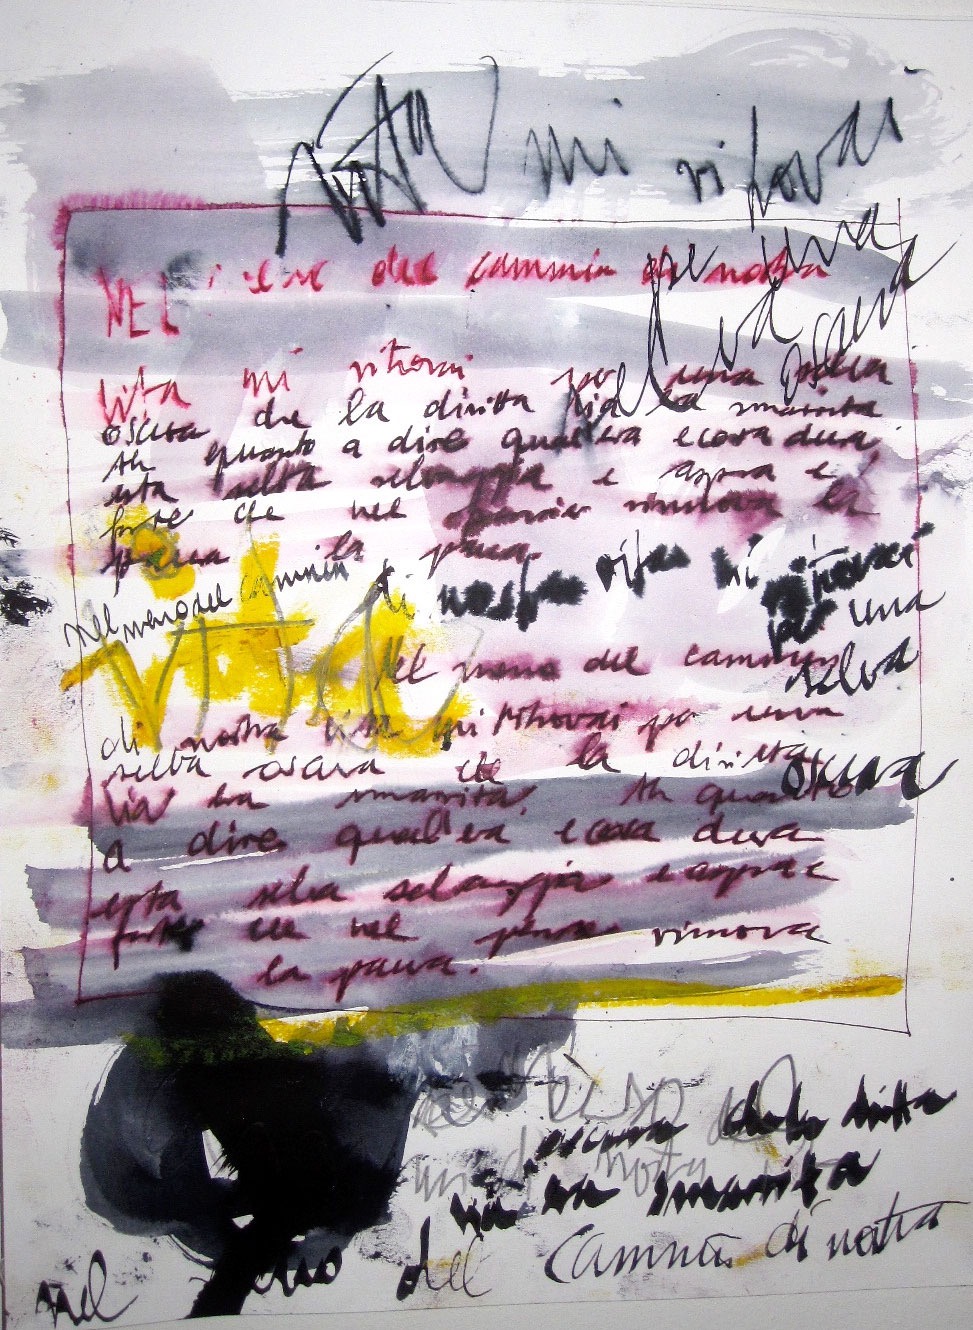 vita mi ritrovai
per una
selva
oscura
NEL del cammin di nostra
vita mi ritrovai per una selva
oscura che la diritta via era smarrita
Ah quanto a dire qual era e cosa dura
esta selva selvaggia e aspra e
forte che nel pensier rinnova la
paura la paura.
nel mezzo del cammin di nostra vita mi ritrovai
per una
selva
oscura
vita
nel mezzo del cammin
di nostra vita mi ritrovai per una
selva oscura che la diritta
via era smarrita. Ah quanto
a dire qual era e cosa dura
esta selva selvaggia e aspra e
forte che nel pensier rinnova
la paura.
oscura che la diritta
via era smarrita
nel del cammin di nostra